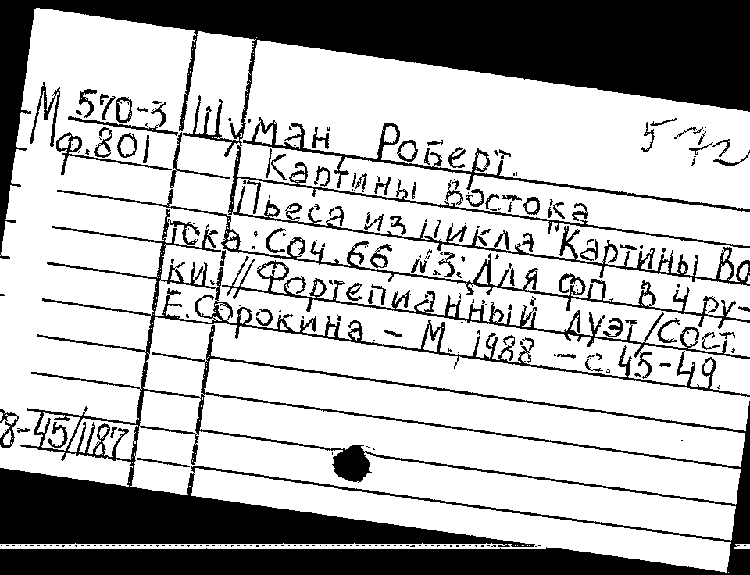 М 570-3 Шуман, Роберт. 572
ф.801 Картины Востока
Пьеса из цикла "Картины Во
тока: Соч. 66, №3: Для фп. в 4 ру-
ки. // Фортепианный дуэт / Сост.
Е. Сорокина. – М., 1988 – с. 45-49.
8-45/1187